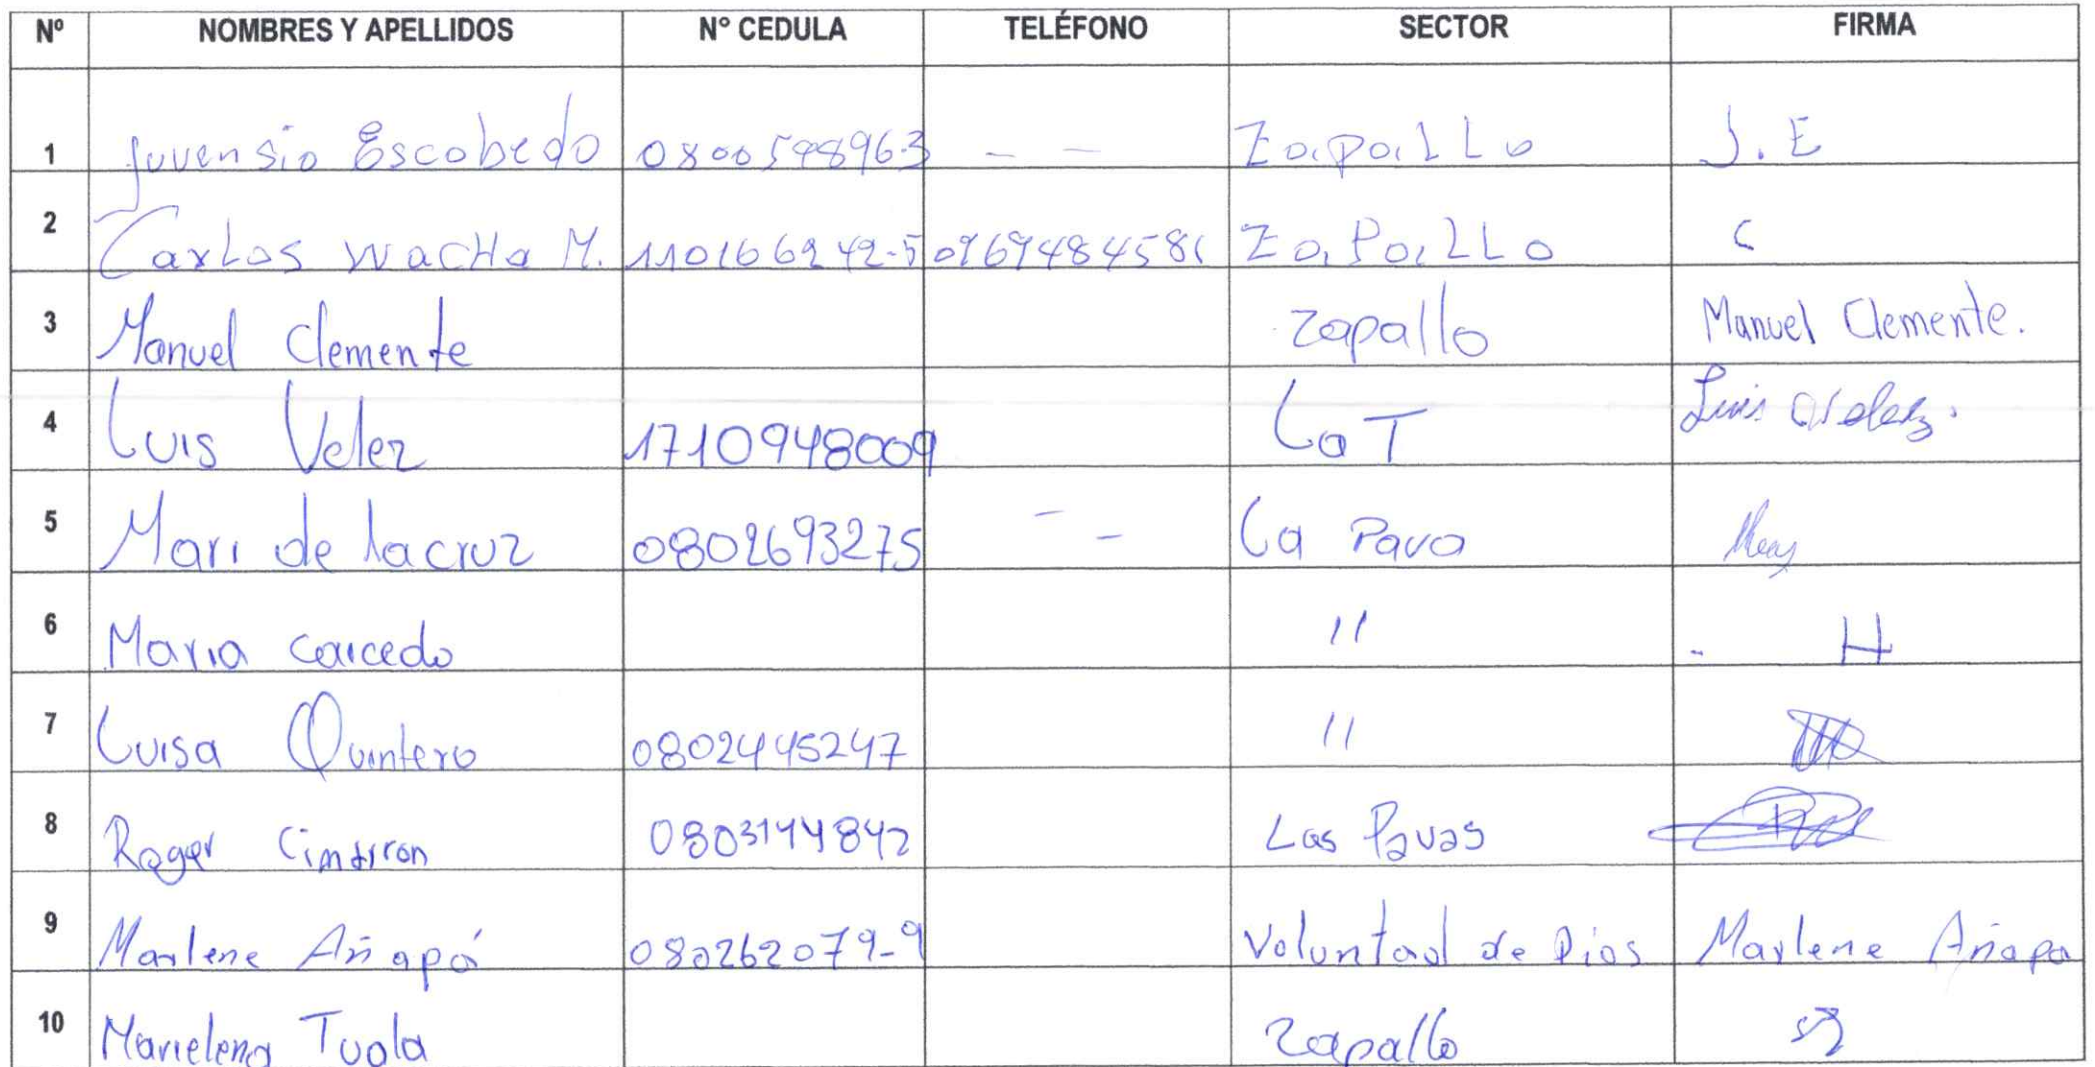 Nº NOMBRES Y APELLIDOS Nº CEDULA TELÉFONO SECTOR FIRMA
1 Juvensio Escobedo 0800598963 - - Zapallo J. E
2 Carlos wacHa M. 110166242-5 Zapallo C
3 Manuel Clemente Zapallo Manuel Clemente.
4 Luis Velez 1710948009 La T Luis Velez.
5 Mari de lacruz 0802693275 - - La Pava
6 Maria Caicedo " H
7 Luisa Quintero 0802445247 "
8 Roger Cimarron 0803144842 Las Pavas
9 Marlene Añapá 080262079-9 Voluntad de Dios Marlene Añapa
10 Marielena Tuala Zapallo